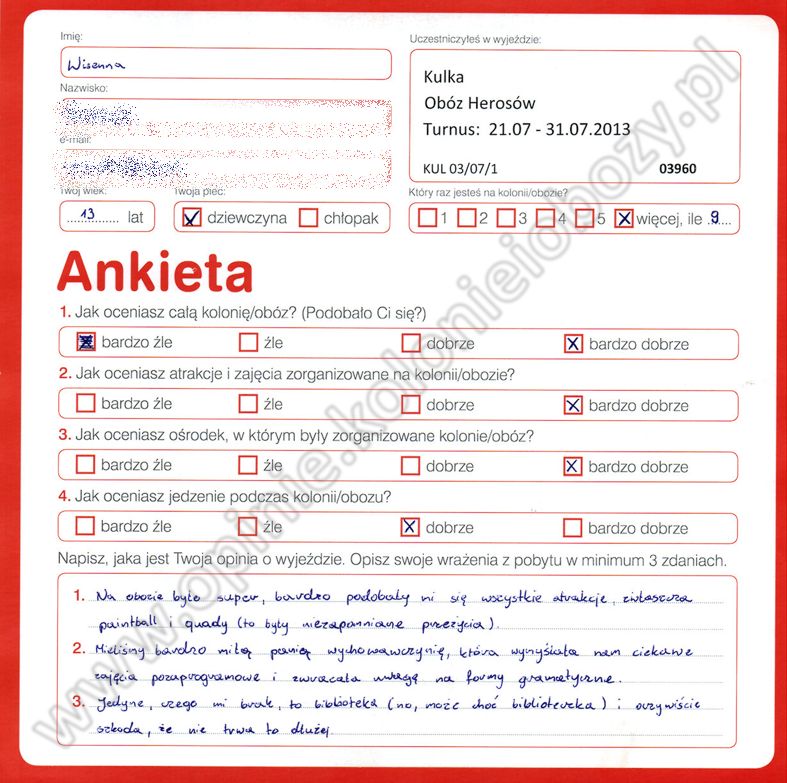 Imię:
Wisenna
Nazwisko:
e-mail:
Twój wiek:
13 lat
Twoja płeć:
dziewczyna chłopak
Uczestniczyłeś w wyjeździe:
Kulka
Obóz Herosów
Turnus: 21.07 - 31.07.2013
KUL 03/07/1 03960
Który raz jesteś na kolonii/obozie?
1 2 3 4 5 więcej, ile 9
Ankieta
1. Jak oceniasz całą kolonię/obóz? (Podobało Ci się?)
bardzo źle źle dobrze bardzo dobrze
2. Jak oceniasz atrakcje i zajęcia zorganizowane na kolonii/obozie?
bardzo źle źle dobrze bardzo dobrze
3. Jak oceniasz ośrodek, w którym były zorganizowane kolonie/obóz?
bardzo źle źle dobrze bardzo dobrze
4. Jak oceniasz jedzenie podczas kolonii/obozu?
bardzo źle źle dobrze bardzo dobrze
Napisz, jaka jest Twoja opinia o wyjeździe. Opisz swoje wrażenia z pobytu w minimum 3 zdaniach.
1. Na obozie było super, bardzo podobały mi się wszystkie atrakcje, zwłaszcza
paintball i quady (to były niezapomniane przeżycia).
2. Mieliśmy bardzo miłą panią wychowawczynię, która wymyślała nam ciekawe
zajęcia pozaprogramowe i zwracała uwagę na formy gramatyczne.
3. Jedyne, czego mi brak, to biblioteka (no, może choć biblioteczka) i oczywiście
szkoda, że nie trwa to dłużej.
www.opinie.kolonieiobozy.pl